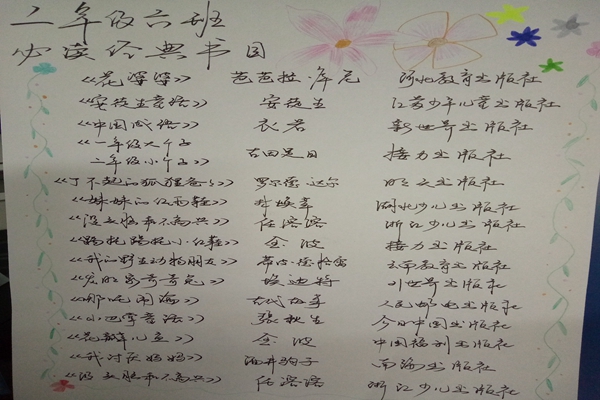 二年级六班
必读经典书目
《花婆婆》 芭芭拉·库尼 河北教育出版社
《安徒生童话》 安徒生 江苏少年儿童出版社
《中国成语》 衣君 新世界出版社
《一年级大个子
二年级小个子》 古田足日 接力出版社
《了不起的狐狸爸爸》 罗尔德·达尔 明天出版社
《妹妹的红雨鞋》 林焕章 湖北少儿出版社
《没头脑和不高兴》 任溶溶 浙江少儿出版社
《踢拖踢拖小红鞋》 金波 接力出版社
《我的野生动物朋友》 云南教育出版社
21世纪出版社
《哪吒闹海》 古代故事 人民邮电出版社
《小巴掌童话》 张秋生 今日中国出版社
《花瓣儿鱼》 金波 中国福利出版社
《我讨厌妈妈》 酒井驹子 南海出版社
《没头脑和不高兴》 任溶溶 浙江少儿出版社